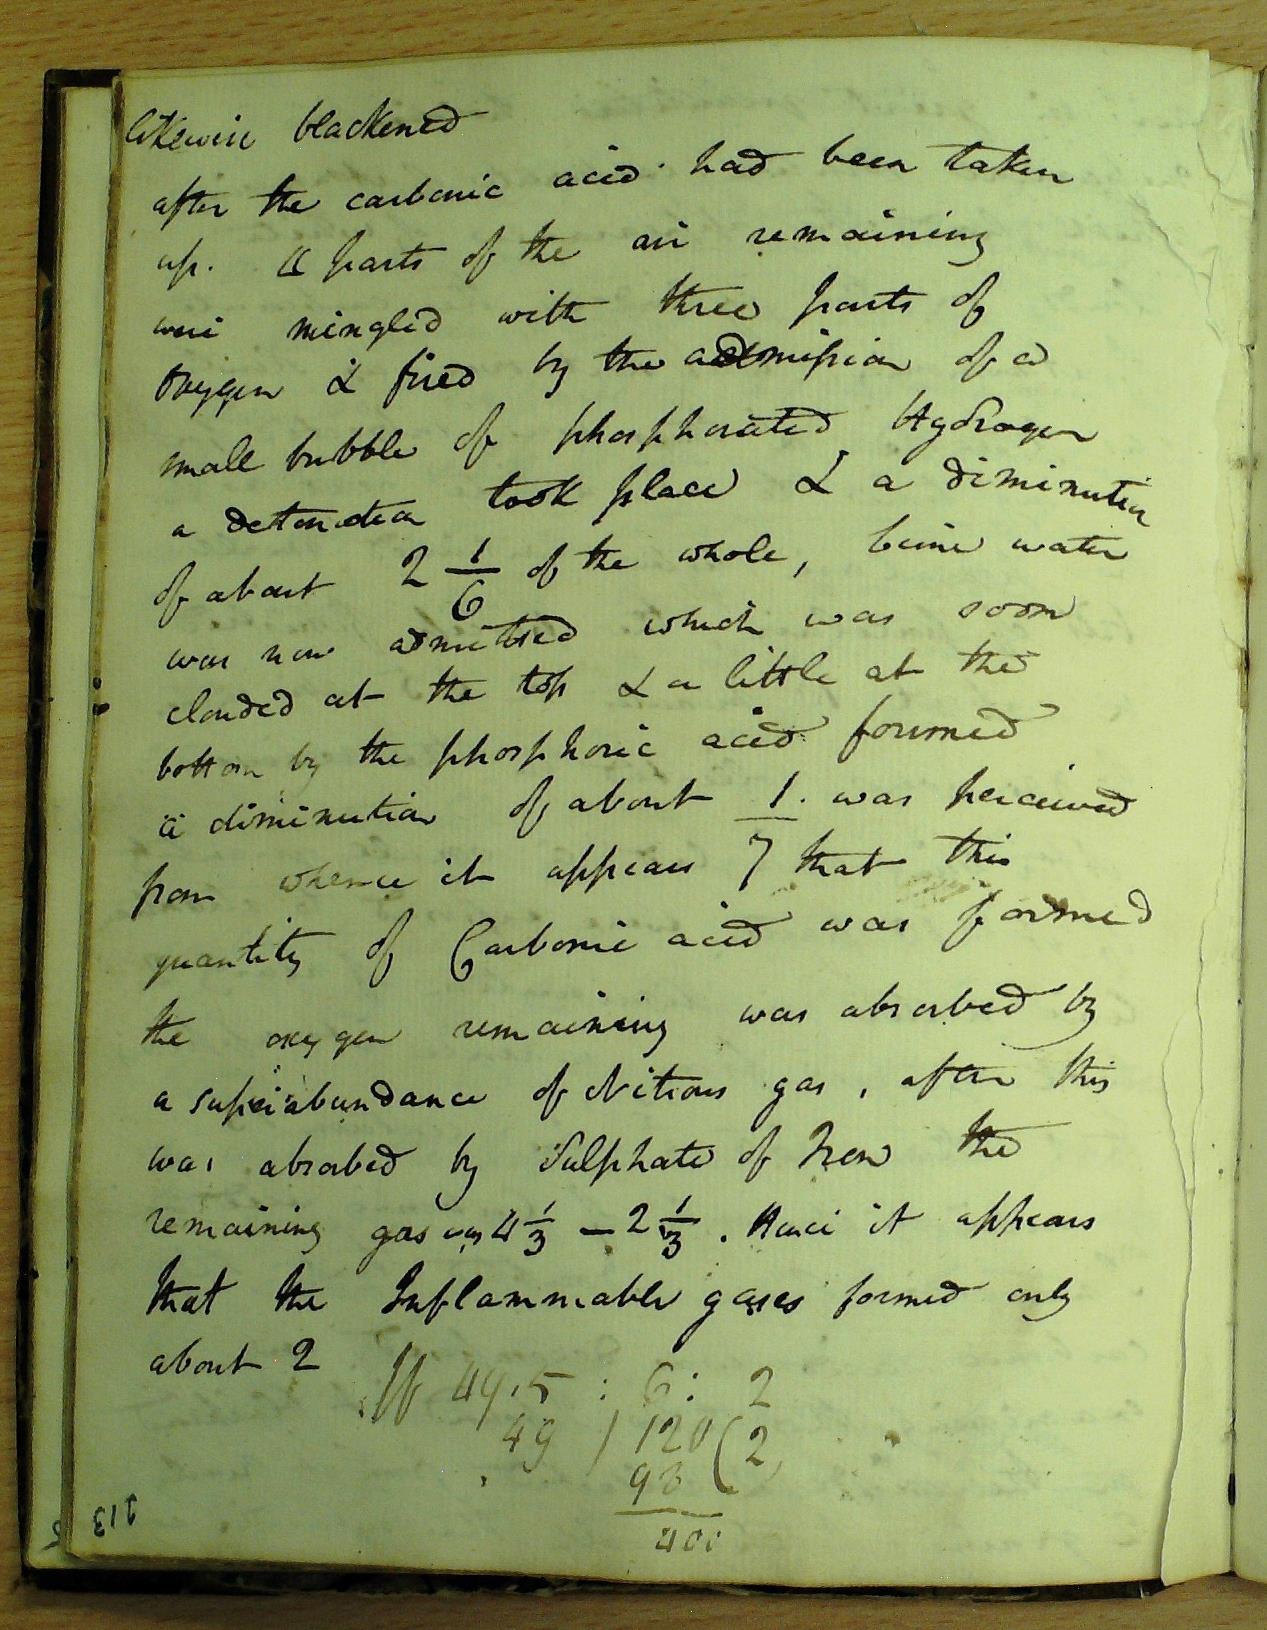 likewise blackened
after the carbonic acid had been taken
up. 4 parts of the air remaining
were mingled with three parts of
oxygen & fired by the admission of a
small bubble of phosphorated Hydrogen
a detonation took place & a diminution
of about 2 1/6 of the whole, lime water
was now admitted which was soon
clouded at the top & a little at the
bottom by the phosphoric acid formed
a diminution of about 1/7. was perceived
from whence it appears that this
quantity of Carbonic acid was formed
the oxygen remaining was absorbed by
a superabundance of Nitrous gas, after this
was absorbed by Sulphate of Iron the
remaining gas was 4 1/3 – 2 1/3. Hence it appears
that the Inflammable gases formed only
about 2
If 49.5 : 6 : 2
49 ) 120 ( 2
98
213